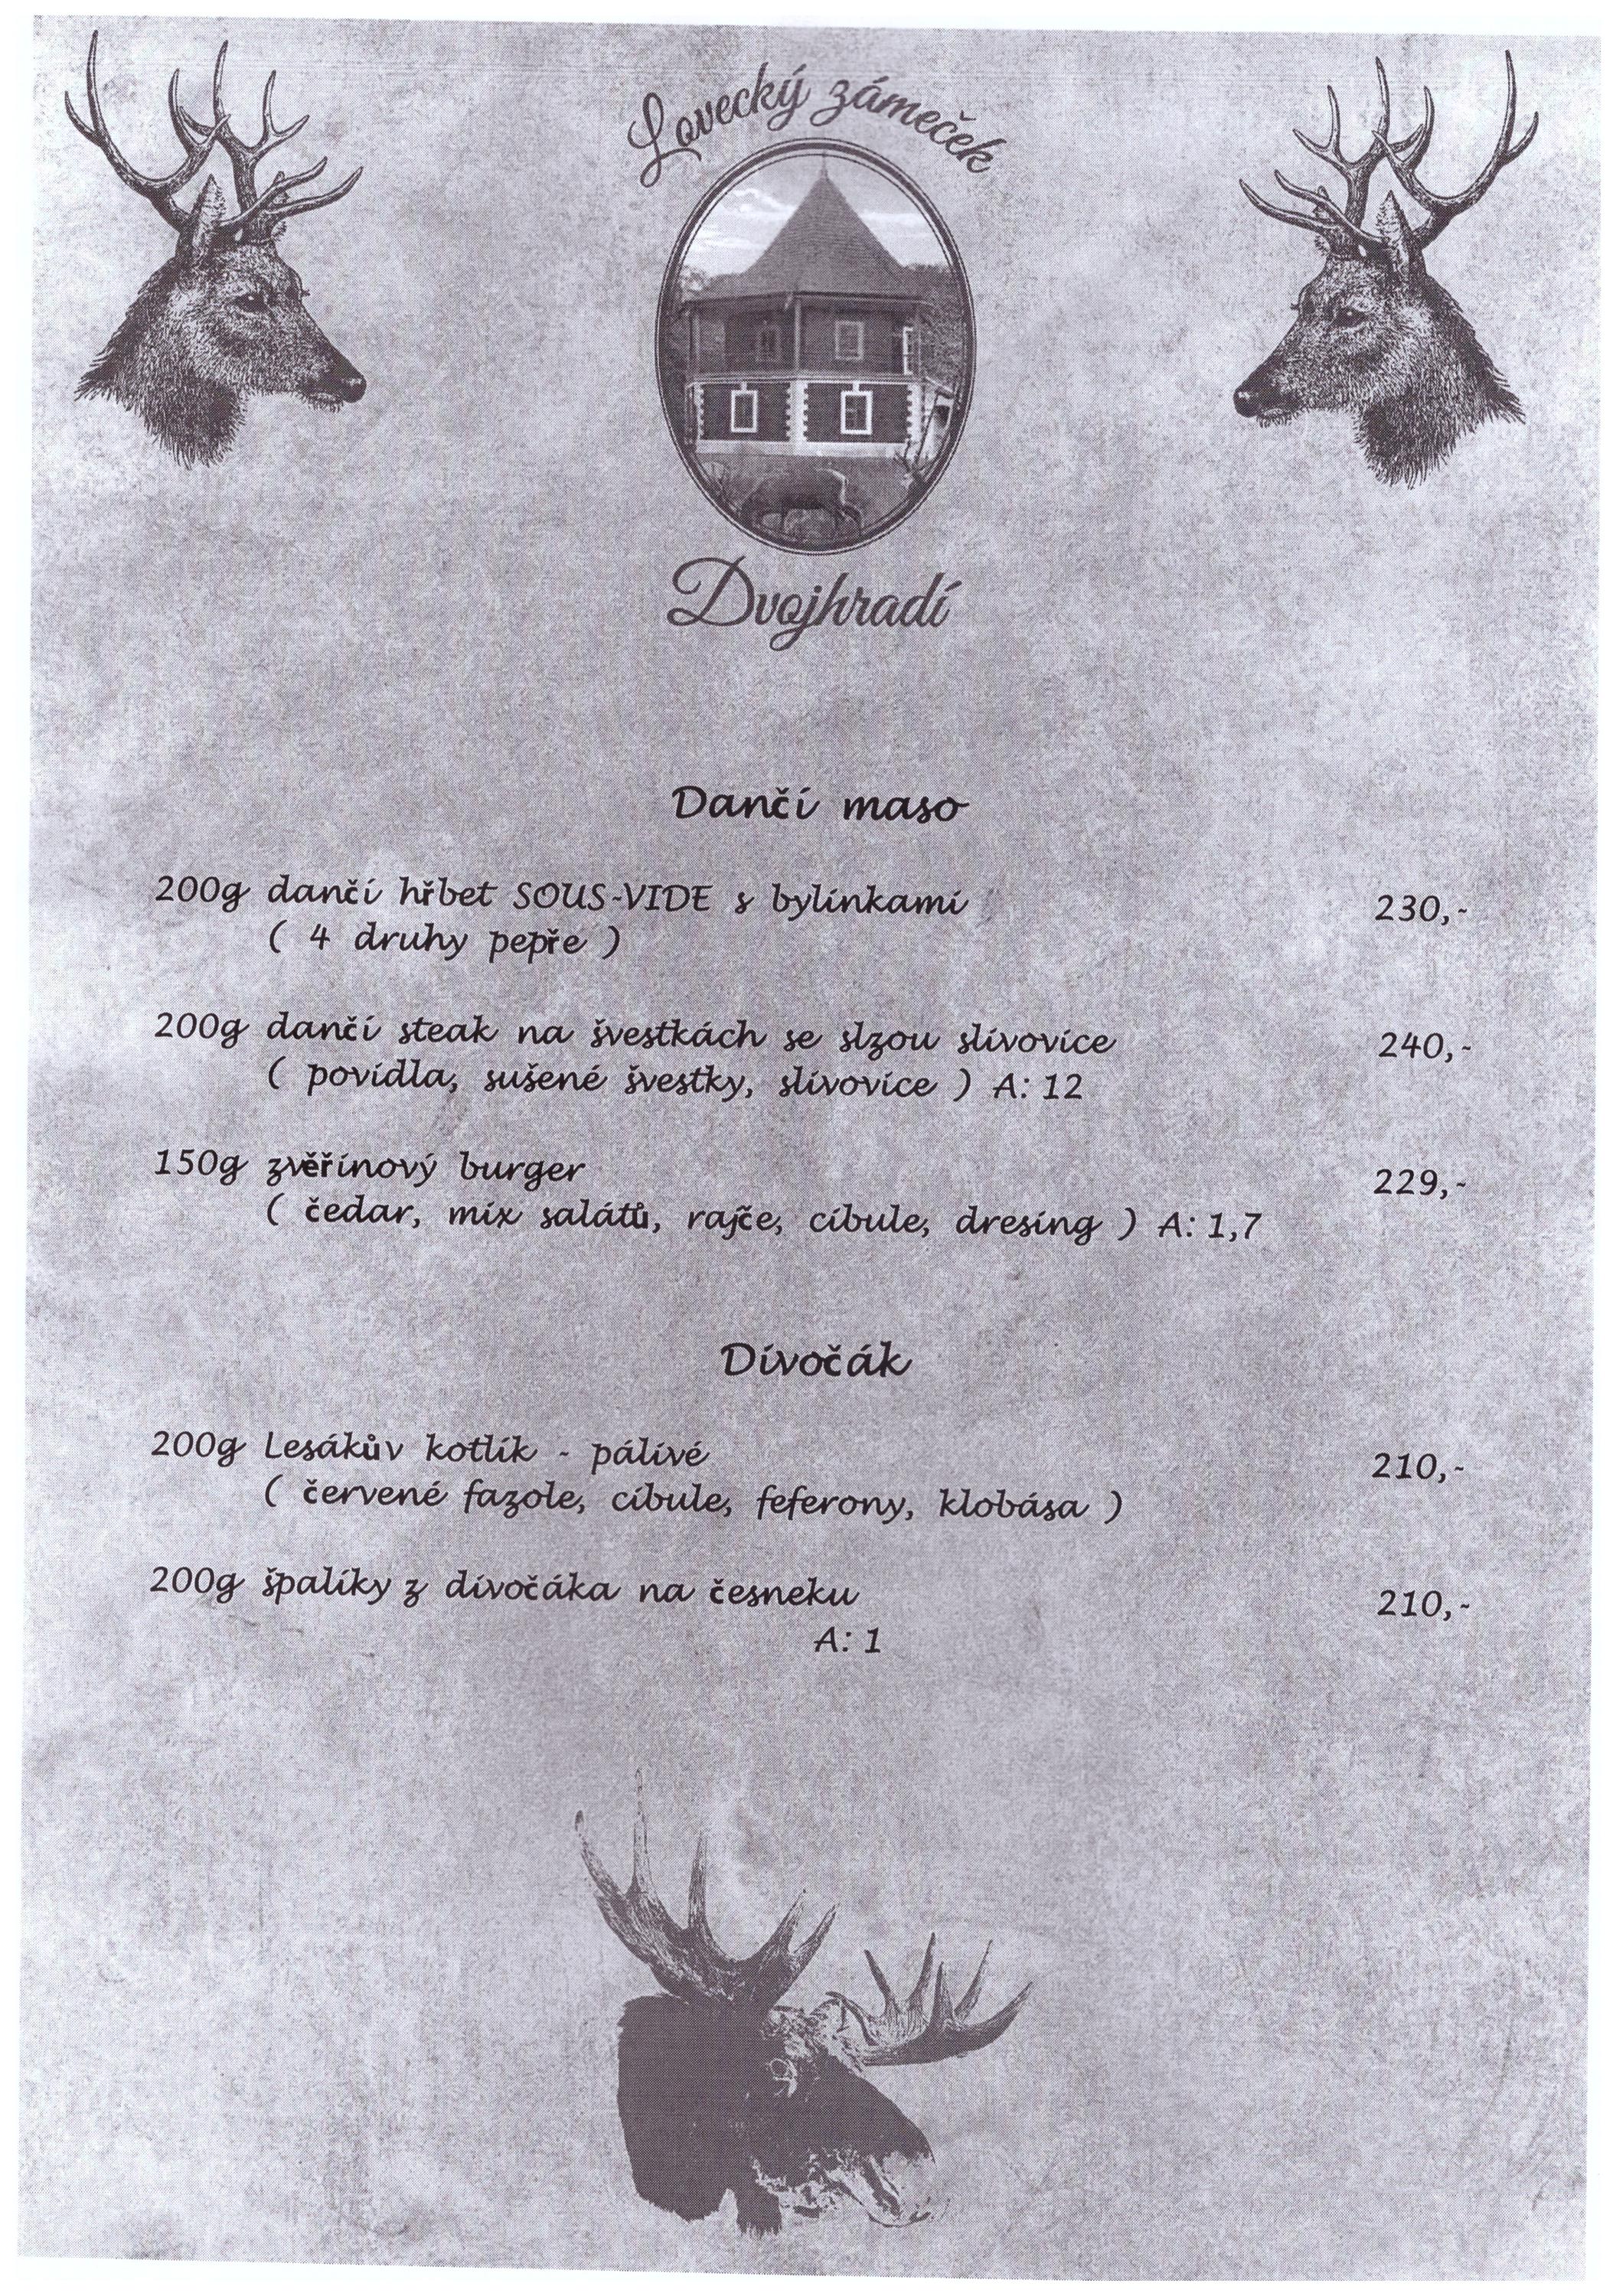 Lovecký zámeček
Dvojhradí
Dančí maso
200g dančí hřbet SOUS-VIDE s bylinkami 230,-
( 4 druhy pepře )
200g dančí steak na švestkách se slzou slivovice 240,-
( povidla, sušené švestky, slivovice ) A: 12
150g zvěřinový burger 229,-
( čedar, mix salátů, rajče, cibule, dresing ) A: 1,7
Divočák
200g Lesákův kotlík - pálivé 210,-
( červené fazole, cibule, feferony, klobása )
200g špalíky z divočáka na česneku 210,-
A: 1